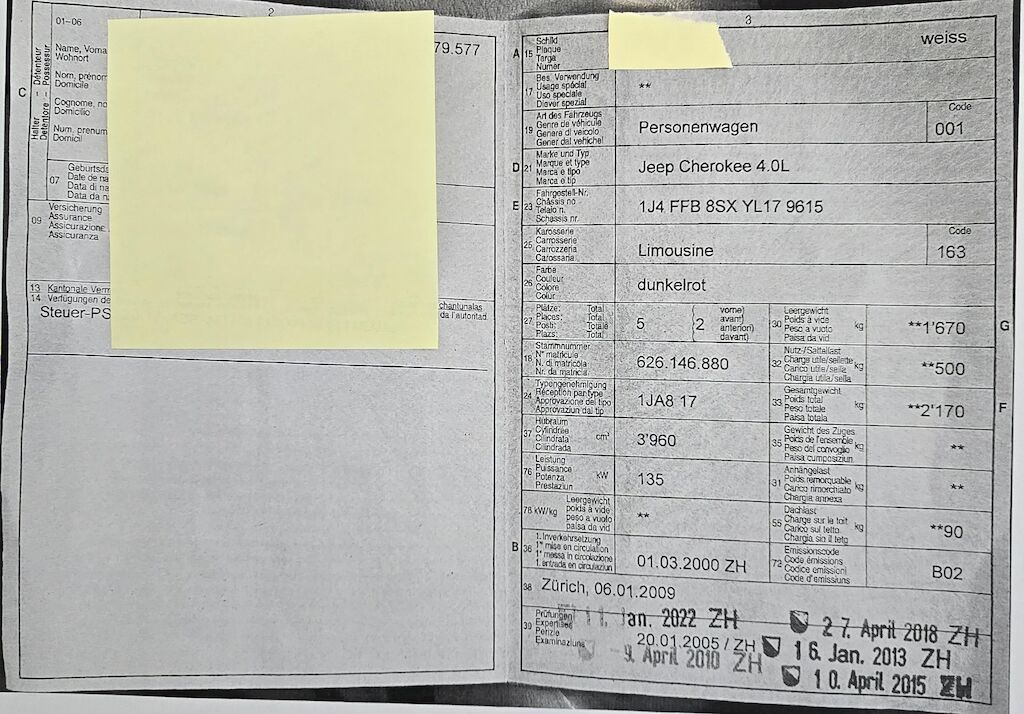 2
01-06
Name, Vorna
Wohnort
Nom, prénom
Domicile
Cognome, no
Domicilio
Num, prenum
Domicil
C
Halter Détenteur
Detentore Possessur
79.577
07
Geburtsda
Date de na
Data di na
Data da na
09
Versicherung
Assurance
Assicurazione
Assicuranza
13 Kantonale Verm
14 Verfügungen de
chantunalas
da l'autoritad
Steuer-PS
3
A 15 Schild
Plaque
Targa
Numer
weiss
17 Bes. Verwendung
Usage spécial
Uso speciale
Diever spezial
**
19 Art des Fahrzeugs
Genre de véhicule
Genere di veicolo
Gener dal vehichel
Personenwagen
Code
001
D 21 Marke und Typ
Marque et type
Marca e tipo
Marca e tip
Jeep Cherokee 4.0L
E 23 Fahrgestell-Nr.
Châssis no
Telaio n.
Schassis nr.
1J4 FFB 8SX YL17 9615
25 Karosserie
Carrosserie
Carrozzeria
Carossaria
Limousine
Code
163
26 Farbe
Couleur
Colore
Colur
dunkelrot
27 Plätze: Total
Places: Total
Posti: Totale
Plazs: Total
5
(2
vorne)
avant)
anteriori)
davant)
30 Leergewicht
Poids à vide
Peso a vuoto
Paisa da vid
kg
**1'670
G
18 Stammnummer
N° matricule
N. di matricola
Nr. da matricla
626.146.880
32 Nutz-/Sattellast
Charge utile/sellette
Carico utile/sella
Chargia utila/sella
kg
**500
24 Typengenehmigung
Réception par type
Approvazione del tipo
Approvaziun dal tip
1JA8 17
33 Gesamtgewicht
Poids total
Peso totale
Paisa totala
kg
**2'170
F
37 Hubraum
Cylindrée
Cilindrata
Cilindrada
cm³
3'960
35 Gewicht des Zuges
Poids de l'ensemble
Peso del convoglio
Paisa cumposiziun
kg
**
76 Leistung
Puissance
Potenza
Prestaziun
kW
135
31 Anhängelast
Poids remorquable
Carico rimorchiato
Chargia annexa
kg
**
78 kW/kg
Leergewicht
poids à vide
peso a vuoto
paisa da vid
**
55 Dachlast
Charge sur le toit
Carico sul tetto
Chargia sin il tetg
kg
**90
B 36 1. Inverkehrsetzung
1re mise en circulation
1a messa in circolazione
1. entrada en circulaziun
01.03.2000 ZH
72 Emissionscode
Code émissions
Codice emissioni
Code d'emissiuns
B02
38 Zürich, 06.01.2009
39 Prüfungen
Expertises
Perizie
Examinaziuns
11. Jan. 2022 ZH
27. April 2018 ZH
20.01.2005 / ZH
16. Jan. 2013 ZH
9. April 2010 ZH
10. April 2015 ZH